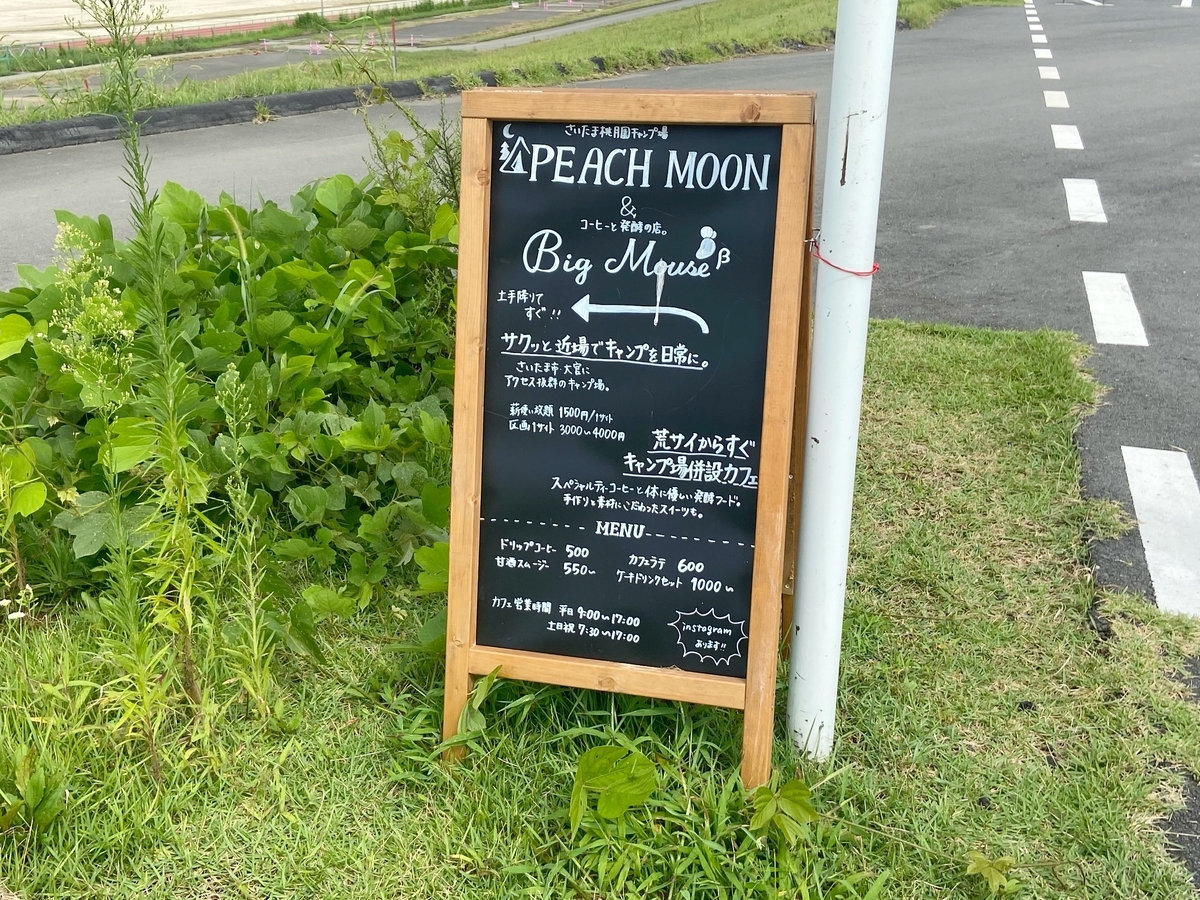 さいたま桃月園キャンプ場
PEACH MOON
&
コーヒーと発酵の店。
Big Mouse β
土手降りて
すぐ!!
サクッと近場でキャンプを日常に。
さいたま市・大宮に
アクセス抜群のキャンプ場。
薪使い放題 1500円/1サイト
区画1サイト 3000〜4000円
荒サイからすぐ
キャンプ場併設カフェ
スペシャルティーコーヒーと体に優しい発酵フード。
手作りと素材にこだわったスイーツも。
MENU
ドリップコーヒー 500
カフェラテ 600
甘酒スムージー 550〜
ケーキドリンクセット 1000〜
カフェ営業時間 平日 9:00〜17:00
土日祝 7:30〜17:00
instagram
あります!!